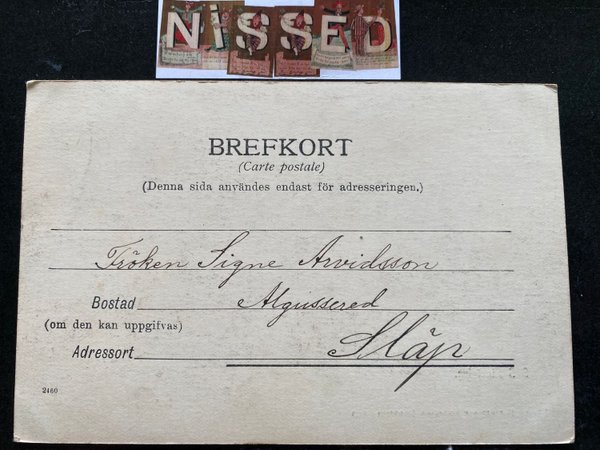 NISSED
BREFKORT
(Carte postale)
(Denna sida användes endast för adresseringen.)
Fröken Signe Arvidsson
Bostad Algussered
(om den kan uppgifvas)
Adressort Släp
2460